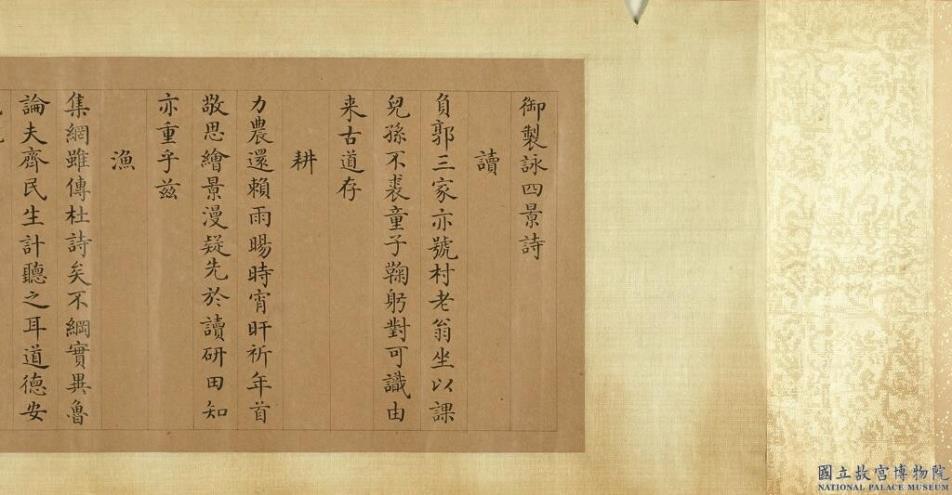 御製詠四景詩
讀
負郭三家亦號村老翁坐以課
兒孫不裘童子鞠躬對可識由
来古道存
耕
力農還賴雨暘時宵旰祈年首
敬思繪景漫疑先於讀研田知
亦重乎兹
漁
集網雖傳杜詩矣不綱實異魯
論夫齊民生計聽之耳道德安
國立故宮博物院
NATIONAL PALACE MUSEUM